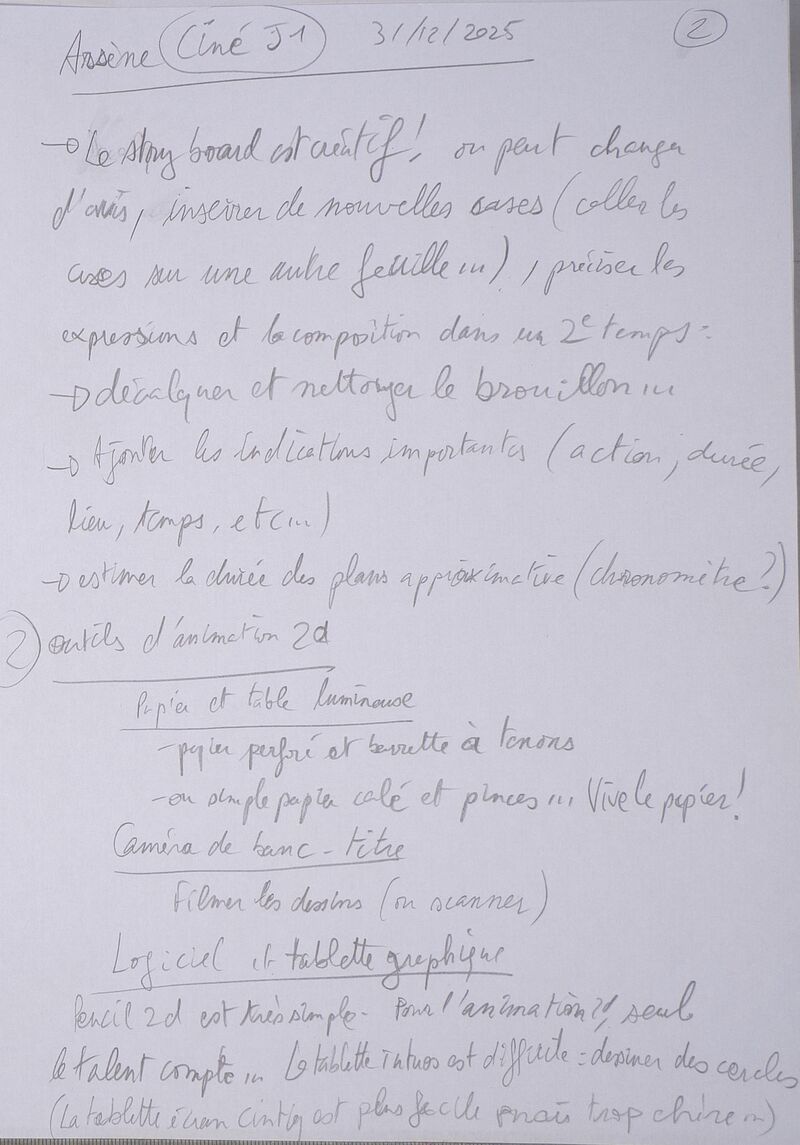 Arsène Ciné J1 31/12/2025 2
→ Le story board est créatif! on peut changer
d'avis, insérer de nouvelles cases (coller les
cases sur une autre feuille...), préciser les
expressions et la composition dans un 2e temps:
→ décalquer et nettoyer le brouillon...
→ Ajouter les indications importantes (action, durée,
lieu, temps, etc...)
→ estimer la durée des plans approximative (chronomètre?)
2 outils d'animation 2d
Papier et table lumineuse
- papier perforé et barrette à tenons
- ou simple papier calé et pinces... Vive le papier!
Caméra de banc-titre
Filmer les dessins (ou scanner)
Logiciel et tablette graphique
Pencil 2d est très simple - Pour l'animation 2d, seul
le talent compte... La tablette intuos est difficile: dessiner des cercles
(La tablette écran Cintiq est plus facile mais trop chère...)